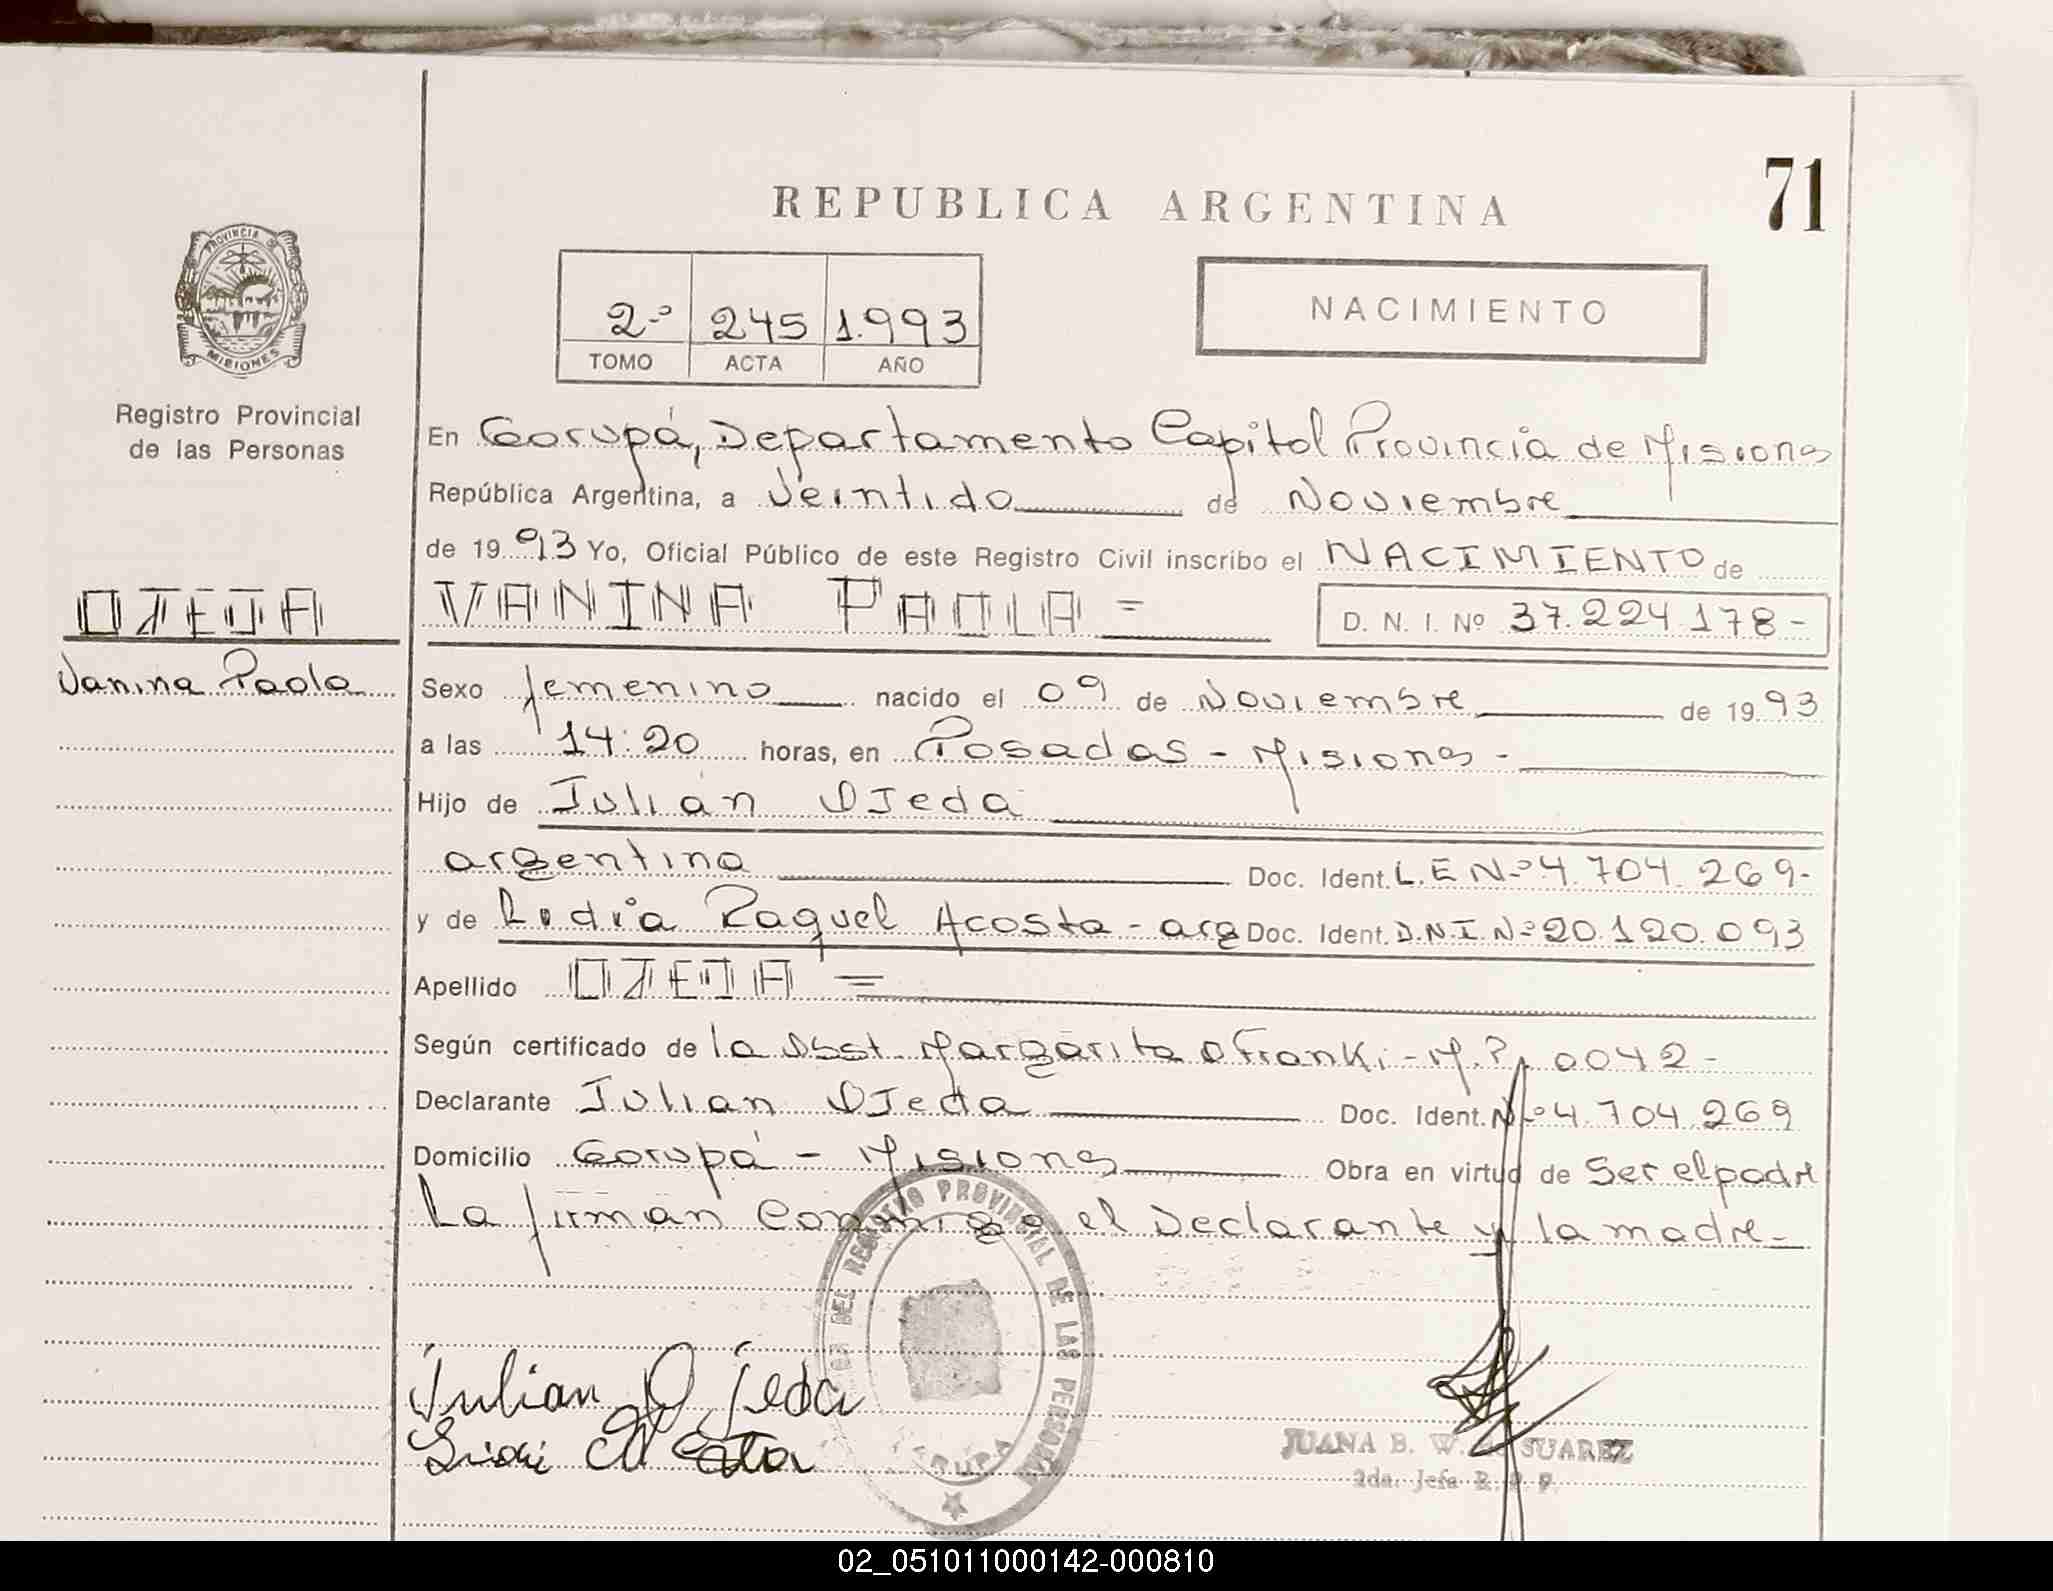 71
REPUBLICA ARGENTINA
PROVINCIA DE
MISIONES
Registro Provincial
de las Personas
2º 245 1.993
TOMO ACTA AÑO
NACIMIENTO
En Garupá, Departamento Capital Provincia de Misiones
República Argentina, a Veintido de Noviembre
de 1993 Yo, Oficial Público de este Registro Civil inscribo el NACIMIENTO de
OJEDA
VANINA PAOLA =
D. N. I. Nº 37.224.178-
Vanina Paola
Sexo femenino nacido el 09 de Noviembre de 1993
a las 14:20 horas, en Posadas - Misiones -
Hijo de Julián Ojeda
argentina Doc. Ident. L.E Nº 4.704.269-
y de Lidia Raquel Acosta - arg Doc. Ident. D.N.I. Nº 20.120.093
Apellido OJEDA =
Según certificado de la Obst. Margarita Franki - M.P. 0042 -
Declarante Julian Ojeda Doc. Ident. Nº 4.704.269
Domicilio Garupá - Misiones Obra en virtud de Ser el padre
La firman conmigo el Declarante y la madre -
DEL REGISTRO PROVINCIAL DE LAS PERSONAS
Julian Ojeda
JUANA B. W. SUAREZ
2da. Jefa R. P. P.
02_051011000142-000810